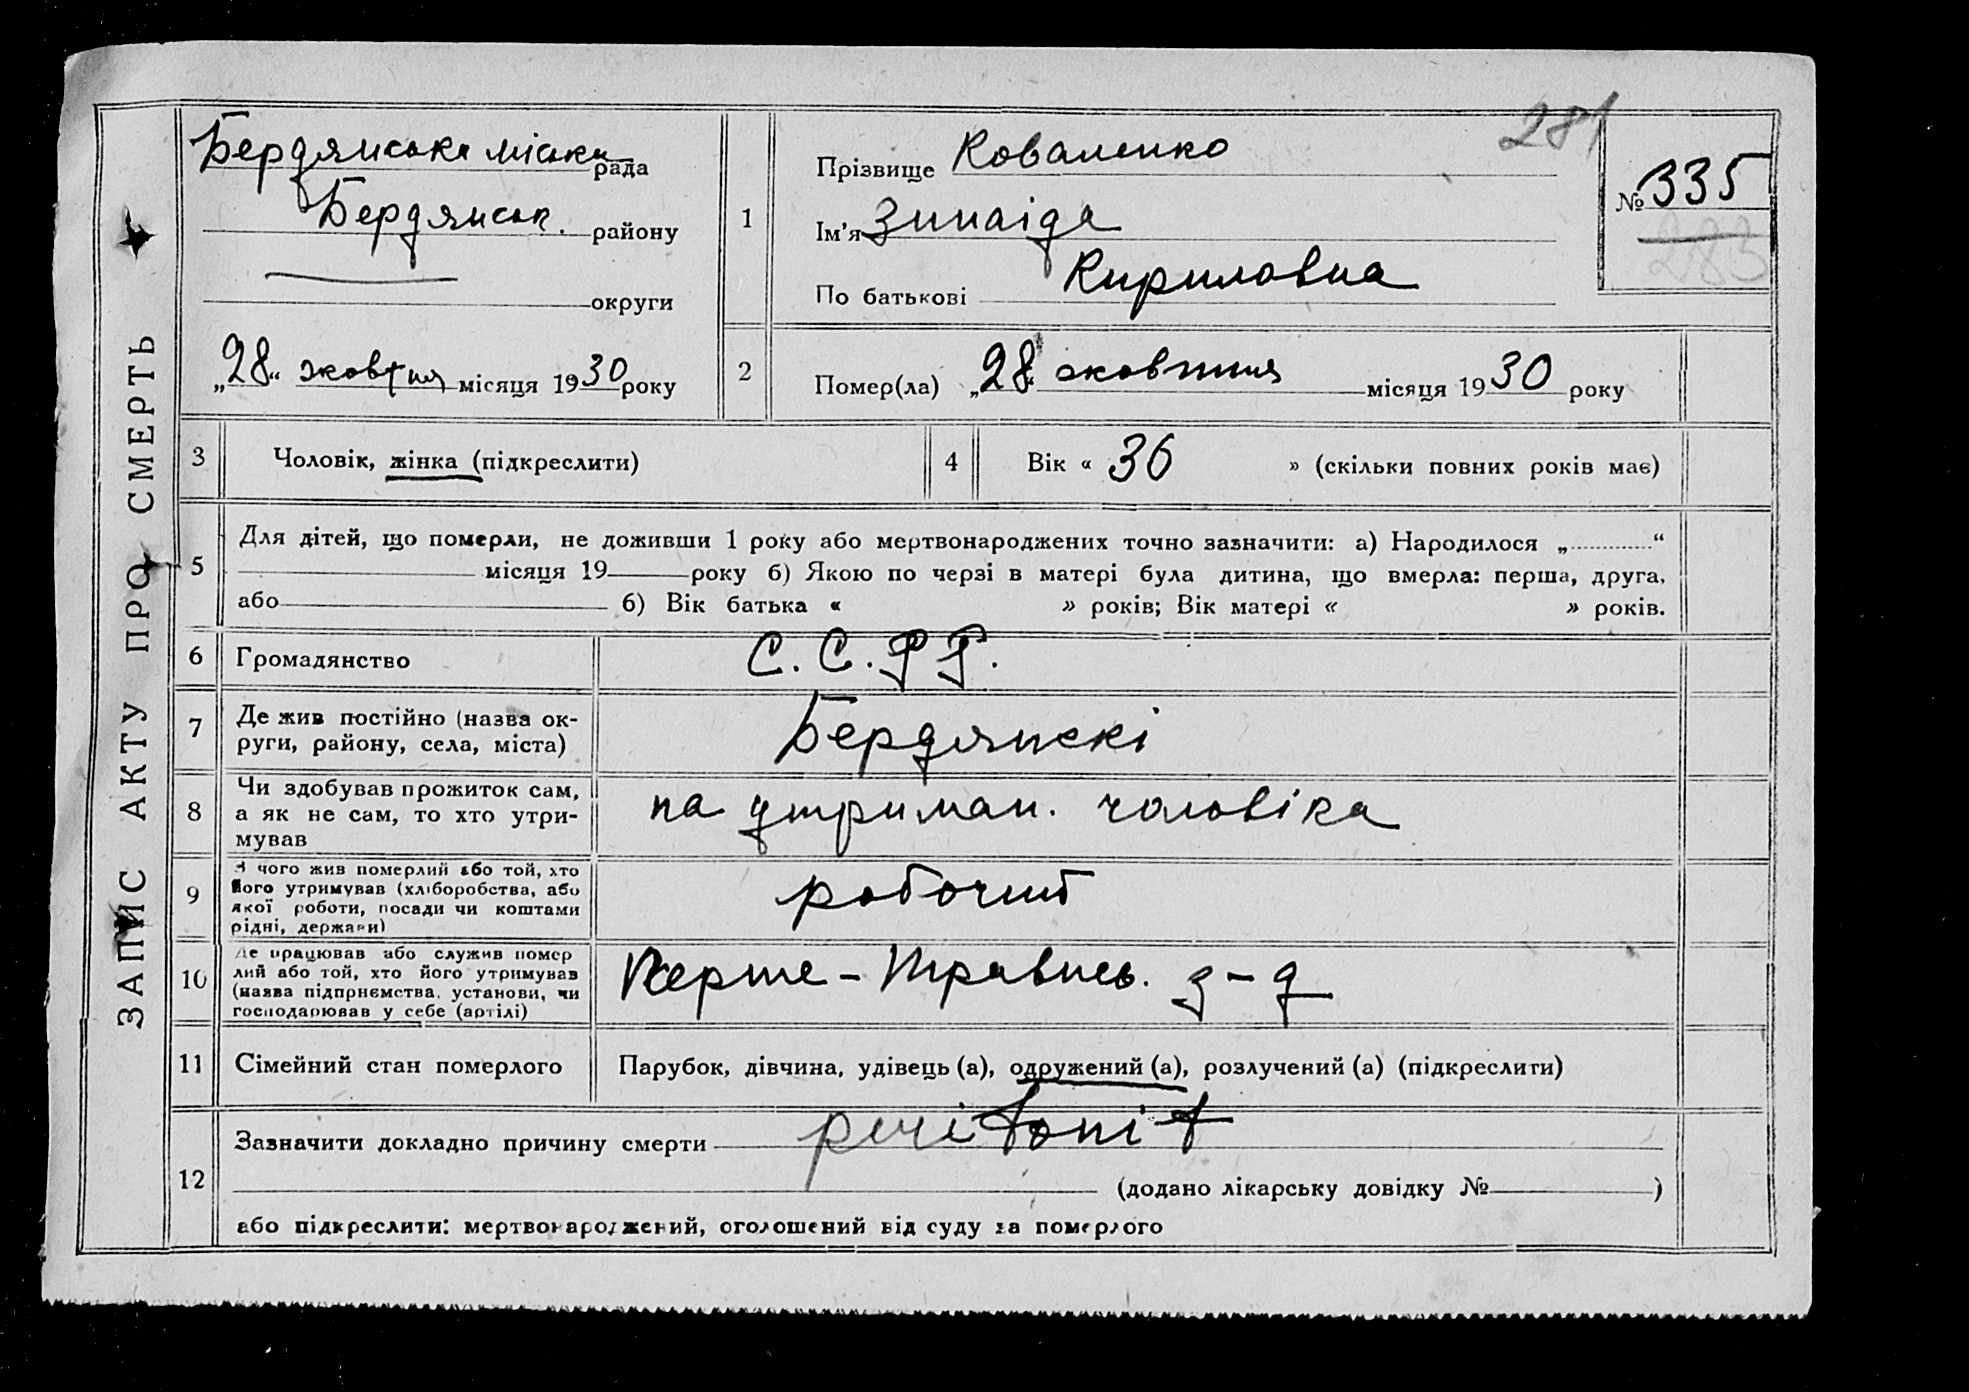 ЗАПИС АКТУ ПРО СМЕРТЬ
281
Бердянська міська рада
Бердянськ. району
округи
„28“ жовтня місяця 1930 року
1
Прізвище Коваленко
Ім'я Зинаіда
По батькові Кириловна
№ 335
283
2
Помер(ла) „28“ жовтня місяця 1930 року
3 Чоловік, жінка (підкреслити)
4 Вік « 36 » (скільки повних років має)
5 Для дітей, що померли, не доживши 1 року або мертвонароджених точно зазначити: а) Народилося „ “
місяця 19 року б) Якою по черзі в матері була дитина, що вмерла: перша, друга,
або б) Вік батька « » років; Вік матері « » років.
6 Громадянство С. С. Р Р.
7 Де жив постійно (назва ок-
руги, району, села, міста)
Бердянскі
8 Чи здобував прожиток сам,
а як не сам, то хто утри-
мував
на утриман. чоловіка
9 З чого жив померлий або той, хто
його утримував (хліборобства, або
якої роботи, посади чи коштами
рідні, держави)
робочий
10 Де працював або служив помер
лий або той, хто його утримував
(назва підпрнємства, установи, чи
господарював у себе (артілі)
Перше-Травнев. з-д
11 Сімейний стан померлого Парубок, дівчина, удівець (а), одружений (а), розлучений (а) (підкреслити)
12 Зазначити докладно причину смерти
(додано лікарську довідку № )
або підкреслити: мертвонароджений, оголошений від суду за померлого